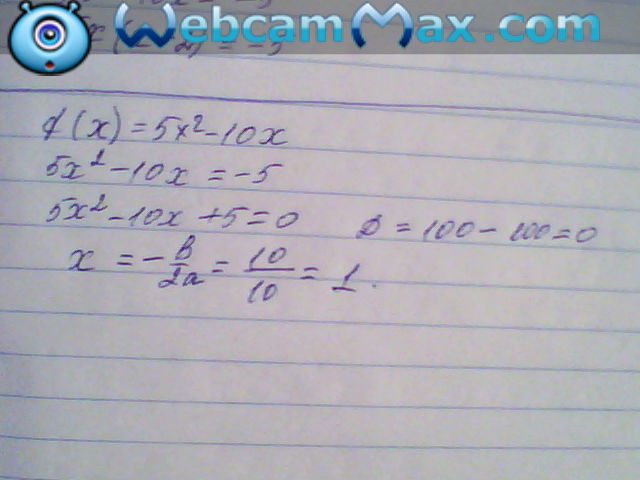 WebcamMax.com
f(x) = 5x² - 10x
5x² - 10x = -5
5x² - 10x + 5 = 0 D = 100 - 100 = 0
x = -b/2a = 10/10 = 1.